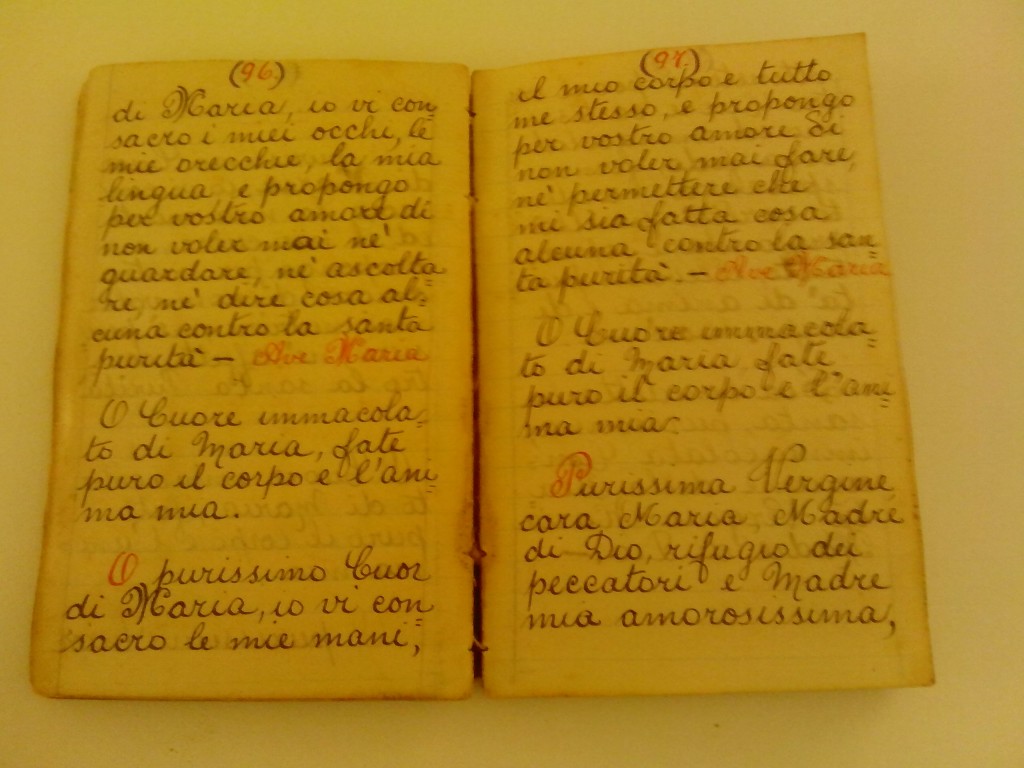 (96)
di Maria, io vi con=
sacro i miei occhi, le
mie orecchie, la mia
lingua e propongo
per vostro amore di
non voler mai nè
guardare, nè ascolta
re, nè dire cosa al=
cuna contro la santa
purità — Ave Maria
O Cuore immacola=
to di Maria, fate
puro il corpo e l'ani=
ma mia.
O purissimo Cuor
di Maria, io vi con=
sacro le mie mani,
(97)
il mio corpo e tutto
me stesso, e propongo
per vostro amore di
non voler mai fare,
nè permettere che
mi sia fatta cosa
alcuna contro la san=
ta purità. — Ave Maria
O Cuore immacola=
to di Maria, fate
puro il corpo e l'ani=
ma mia.
Purissima Vergine
cara Maria, Madre
di Dio, rifugio dei
peccatori e Madre
mia amorosissima,